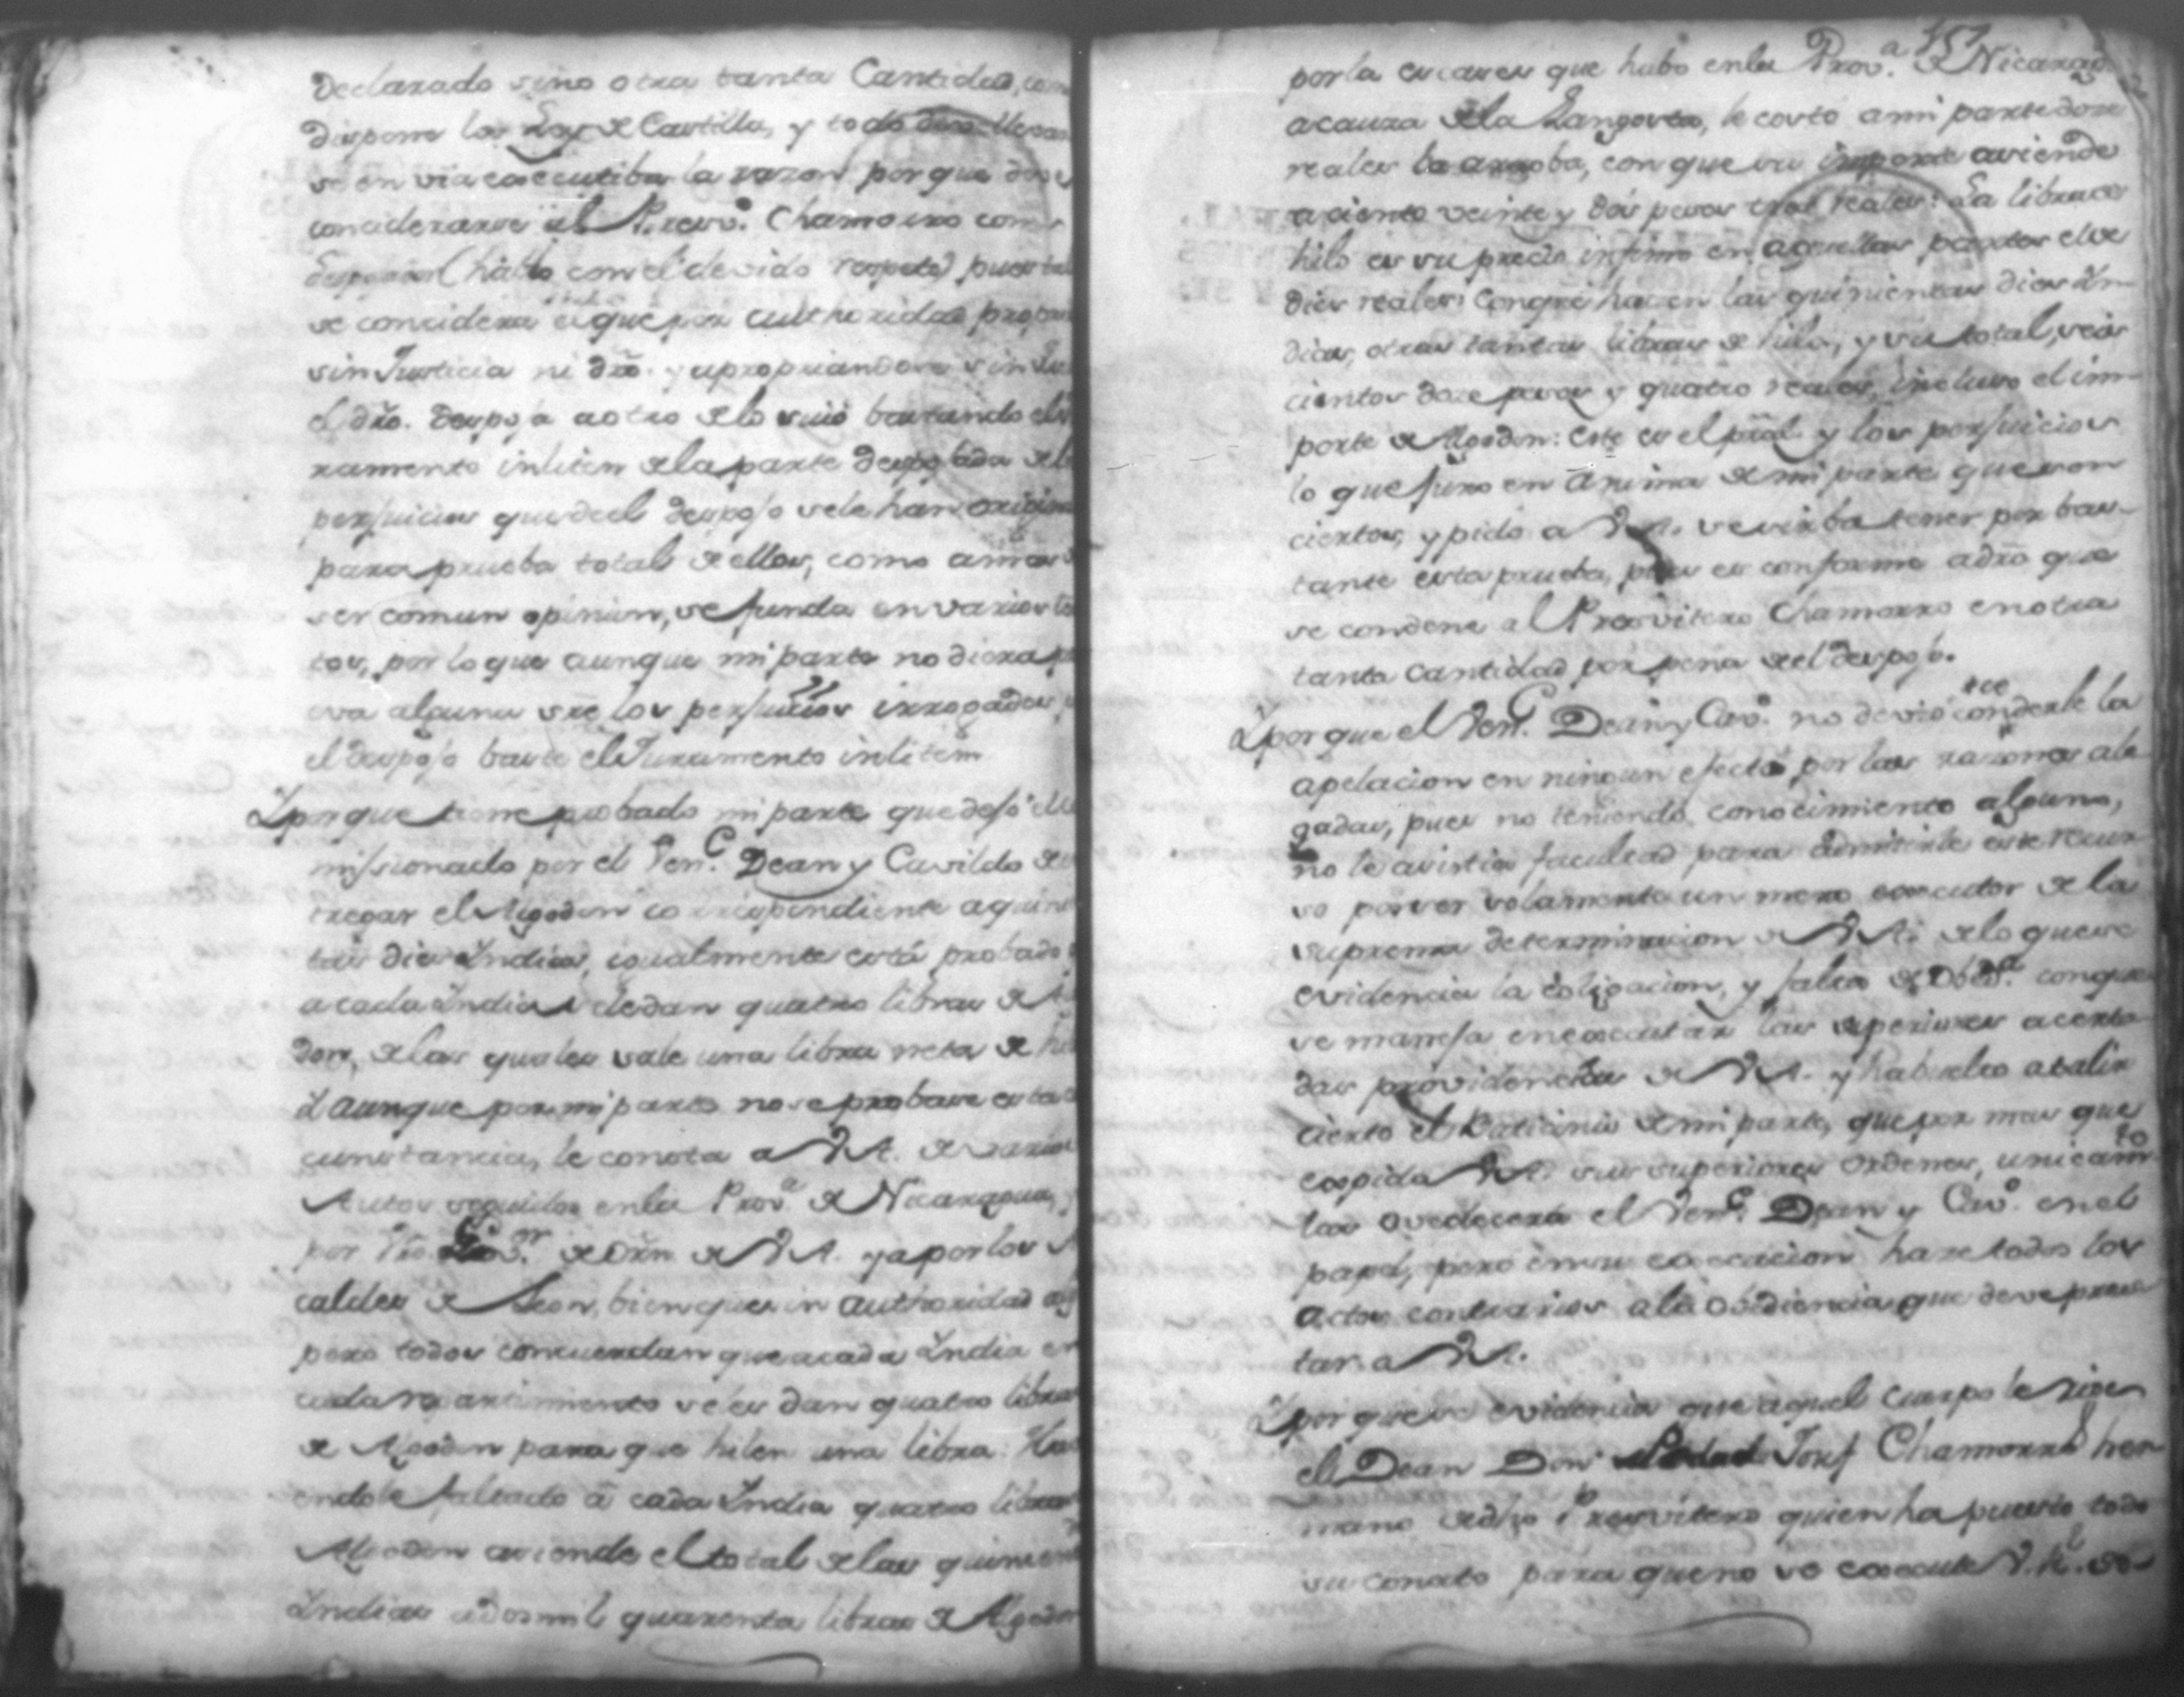 declarado sino otra tanta Cantidad, com
dispone la Ley de Castilla, y todo
se en via executiba la razon porque
conciderarse el Presvº. Chamorro com
(hablo con el devido respeto) pues
se concidera el que por authoridad propri
sin Justicia ni dro. y apropriandose sin
el dro. despoja a otro de lo suio bastando el
ramento inlitem de la parte despojada de l
perjuicios que de el despojo se le han origin
para prueba total de ellos, como a mas
ser comun opinion, se funda en varios
tos, por lo que aunque mi parte no diera
eva alguna sre. los perjuicios irrogados
el despojo basta el Juramento inlitem
Y porque tiene probado mi parte que dejó el
missionado por el Vene. Dean y Cavildo de
tregar el Algodon correspondiente a quini
tas dies Indias, igualmente está probado
a cada India se le dan quatro libras de
don, de las quales sale una libra neta de hi
Y aunque por mi parte no se probase esta
cunstancia, le consta a V.A. de varios
Autos seguidos en la Prova. de Nicaragua,
por de Orn. de V.A. ya por los
caldes de Leon, bien que sin authoridad
pero todos concuerdan que a cada India en
cada repartimiento se les dan quatro libras
de Algodon para que hilen una libra. Hav
endole faltado â cada India quatro libras
Algodon asciende el total de las quinien
Indias a dos mil quarenta libras de Algodon
151
por la escases que hubo en la Prova. de Nicarag
a causa de la Langosta, le costó a mi parte doze
reales la arroba, con que su importe asciende
a ciento veinte y dós pesos tres reales: La libra de
hilo es su precio infimo en aquellas partes el de
dies reales: Conque hacen las quinientas dies In-
dias, otras tantas libras de hilo, y su total, seis
cientos doze pesos y quatro reales, incluso el im-
porte de Algodon: Este es el pral. y los perjuicios
lo que juro en anima de mi parte que son
ciertos, y pido a V.A. se sirba tener por bas-
tante esta prueba, pues es conforme a dro que
se condene al Presvitero Chamorro en otra
tanta Cantidad por pena de el despojo.
Y porque el Vene. Dean y Cavº. no devió concederle la
apelacion en ningun efecto por las razones ale
gadas, pues no teniendo conocimiento alguno,
no le asistia facultad para admitirle este recur
so por ser solamente un mero executor de la
suprema determinacion de V.A. de lo que se
evidencia la coligacion, y falta de Obeda. conque
se maneja en executar las superiores acerta
das providencias de V.A. y ha buelto a salir
cierto el Vaticinio de mi parte, que por mas que
expida V.A. sus superiores Ordenes, unicamto
las ovedecera el Vene. Dean y Cavº. en el
papel, pero en su execucion hace todos los
actos contrarios a la obediencia que deve pres
tar a V.A.
Y porque se evidencia que aquel cuerpo le rige
el Dean Don Josef Chamorro her
mano de dho Presvitero quien ha puesto todo
su conato para que no se execute V. Rl. so-